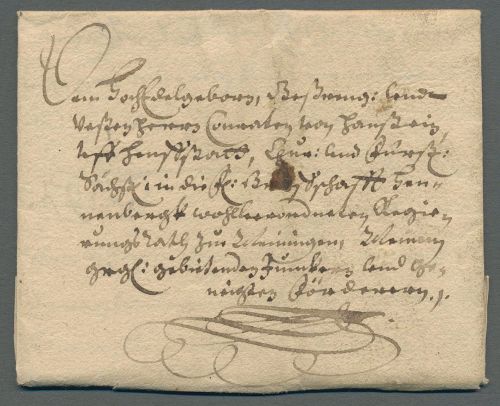 Dem HochEdelgeborn, Gestreng: und
Vesten Herrn Conraten von Hanstein,
uff Henffstätt, Chur: und Fürstl:
Sächß: in die Fl: Graffschafft Hen-
nenbergk wohlverordneten Regie-
rungs Rath zur Meiningen, Meinem
großg: gebietenden Junkern und Ge-
neigten Förderern.